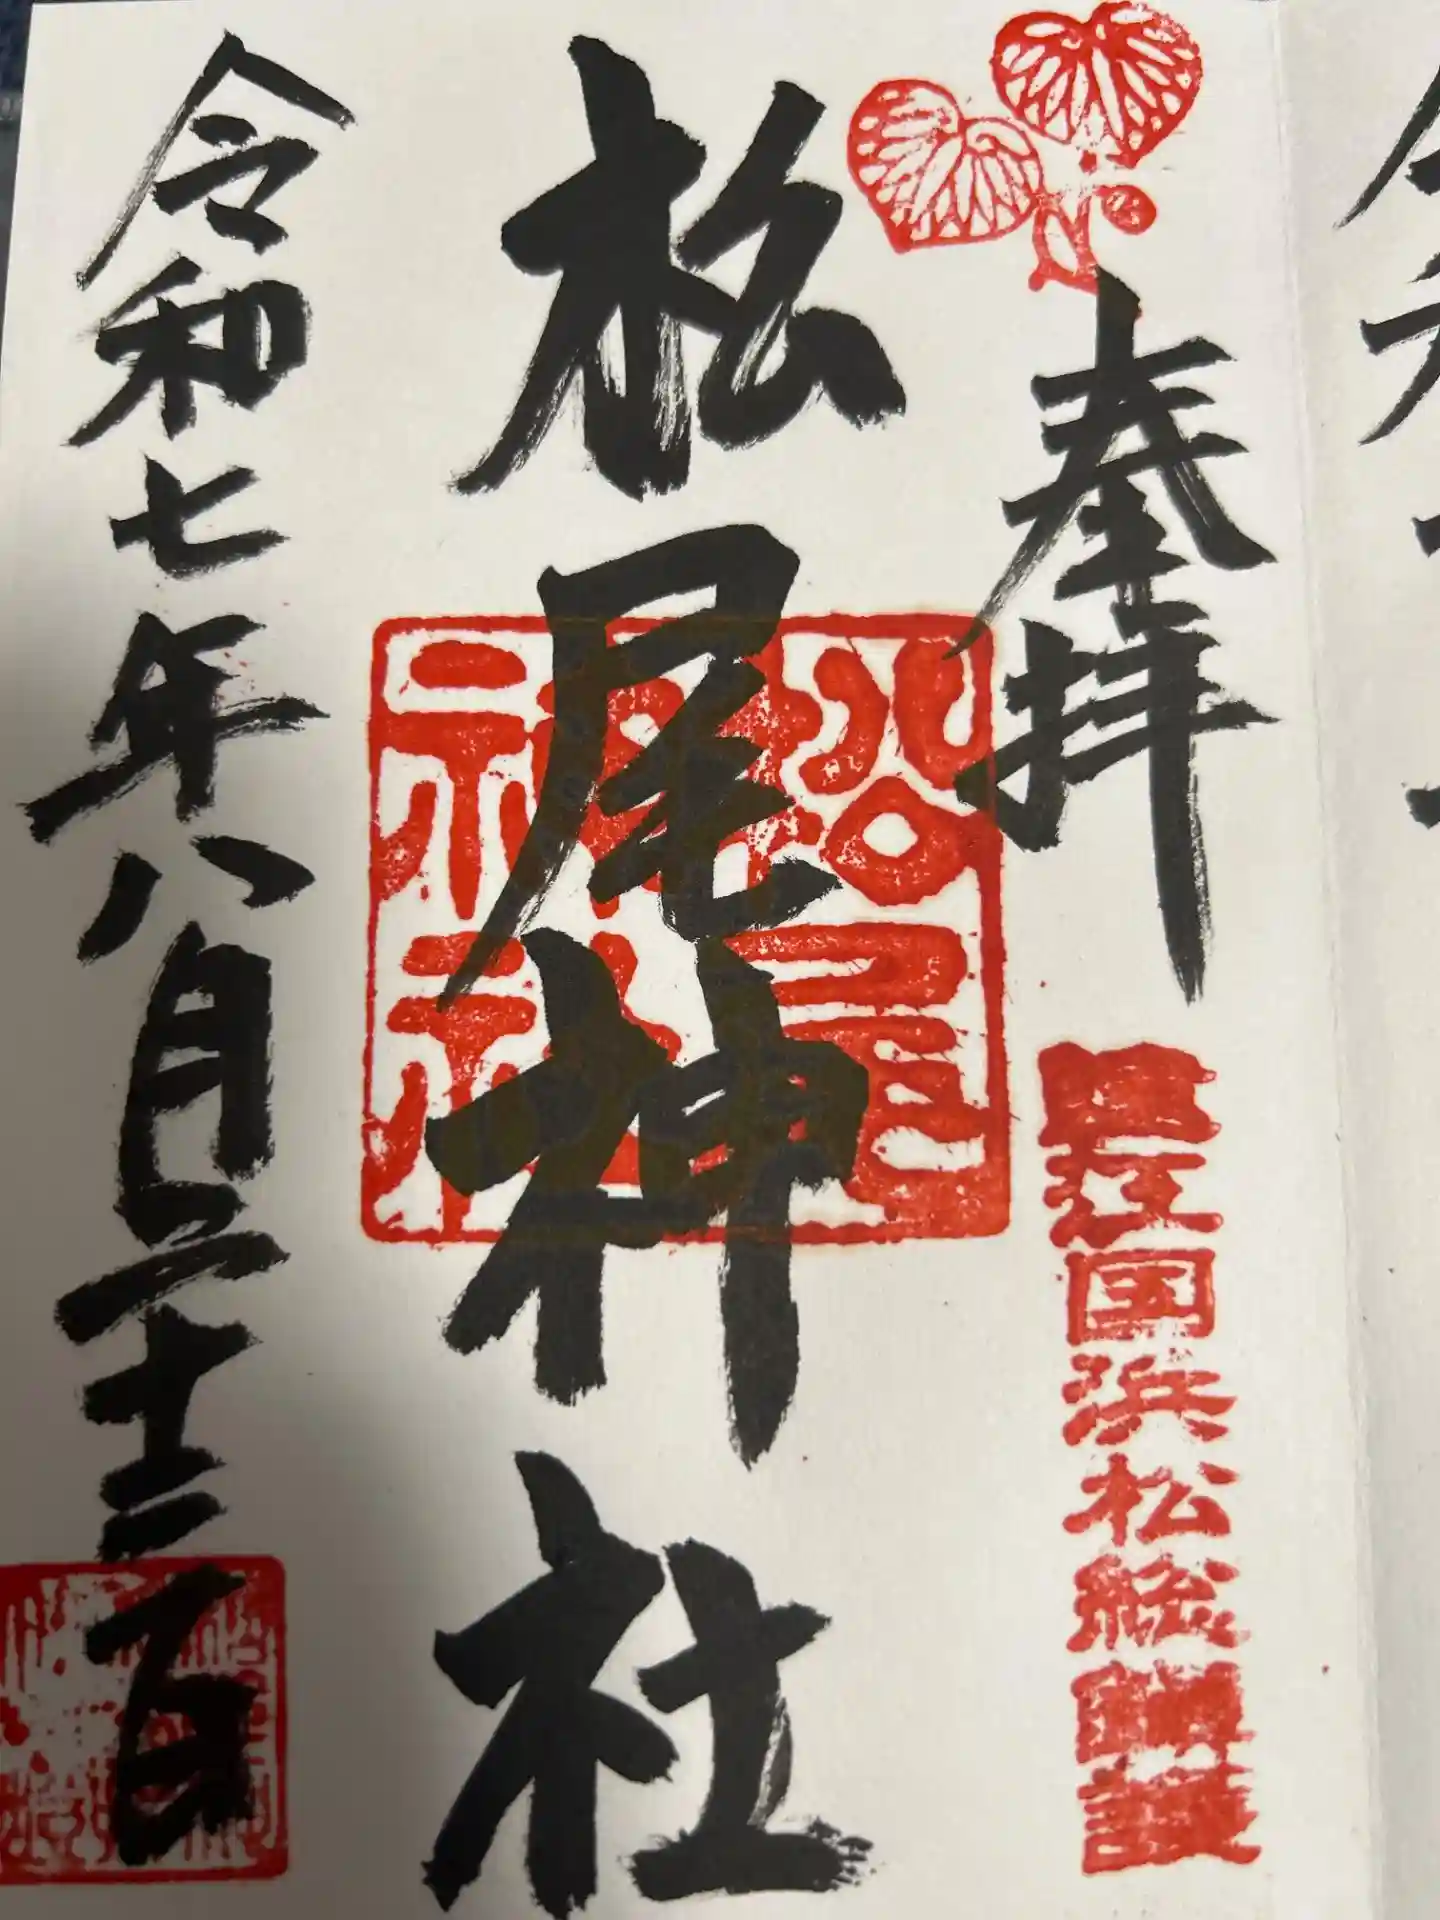 奉拝
遠江国浜松総鎮護
松尾神社
松尾神社
令和七年八月二十三日